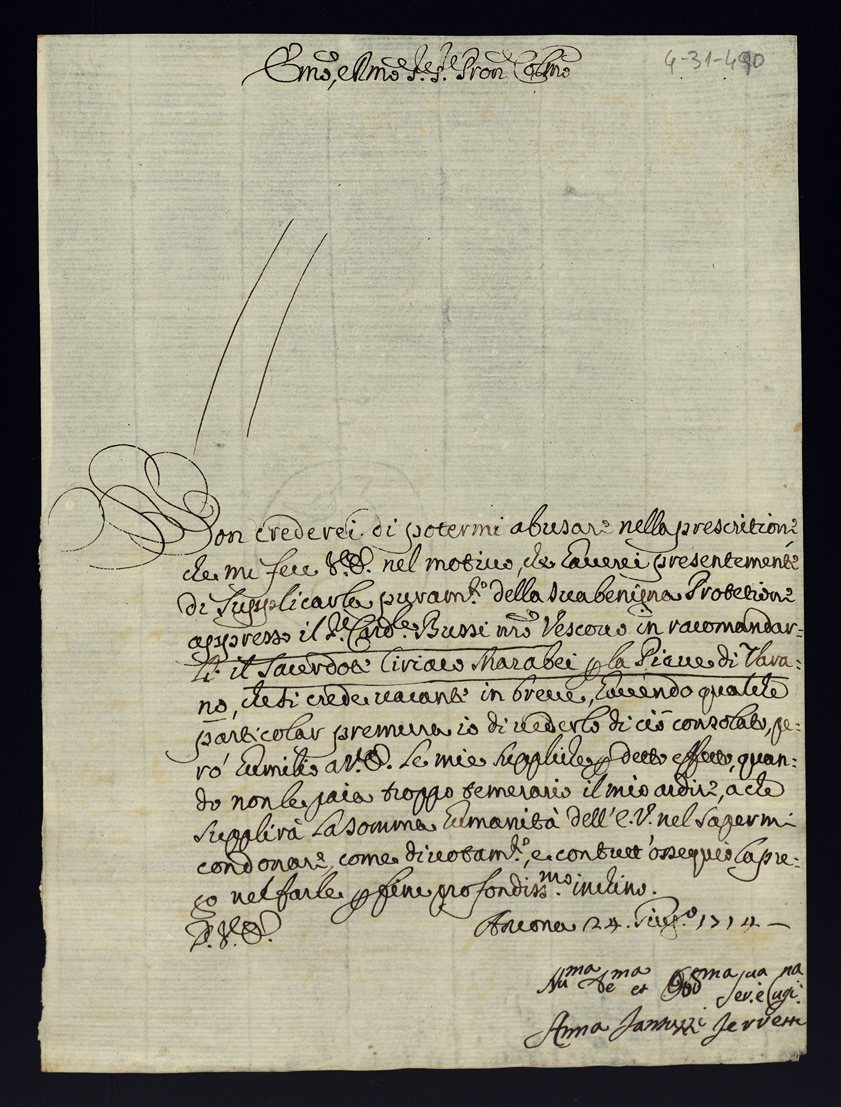 4-31-490
Emo, e Rmo Sre Sre Pron Colmo
Non crederei di potermi abusare nella prescritione
che mi fece V.E. nel motivo, che haverei presentemente
di supplicarla puramte della sua benigna Protetione
appresso il Sr Cardle Bussi nro Vescovo in racomandar=
li il Sacerdote Ciriaco Marabei p la Pieve di Vara=
no, che si crede vacante in breve, havendo qualche
particolar premura io di vederlo di ciò consolato, pe=
rò humilio a V.E. le mie suppliche p detto effetto, quan=
do non le paia troppo temerario il mio ardire, a che
supplirà la somma humanità dell'E.V. nel sapermi
condonare, come divotamte, e con tutt'ossequio la pre=
go nel farle p fine profondissmo inchino.
D.V.E.
Ancona 24. Giugo 1714
Numa Dema et Obbma sua
Ser. e Cugina
Anna